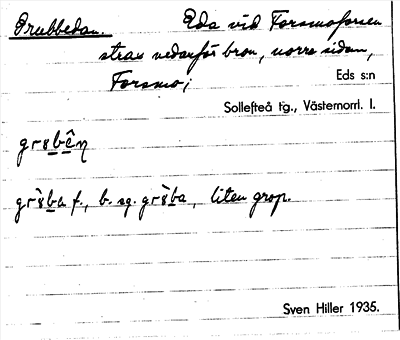 Grubbedan. Eda vid Forsmoforsen
strax nedanför bron, norra sidan,
Forsmo; Eds s:n
Sollefteå tg., Västernorrl. l.
b. sg.
liten grop.
Sven Hiller 1935.